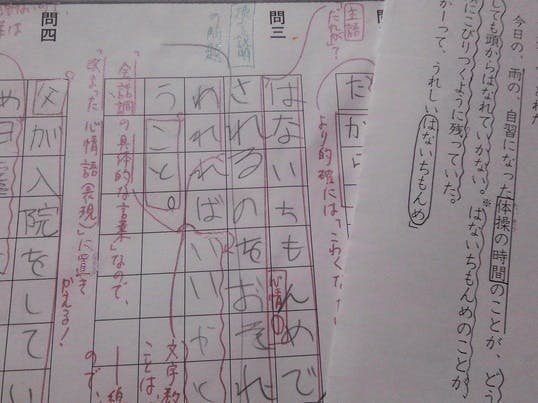 今日の、雨の、自習になった体操の時間のことが、どう
しても頭からはなれていかない。※はないちもんめのことが、
にこびりつくように残っていた。
かーって、うれしいはないちもんめ
主語
だから
より的確には
問三
はないちもんめで
心情
の問題
されるのをおそれ
われればいいかと
文字数
ことは、
うこと。
会話調の具体的な言葉」なので、
改まった心情語(表現)」に置き
かえる!
ので、
問四
父が入院をしてい